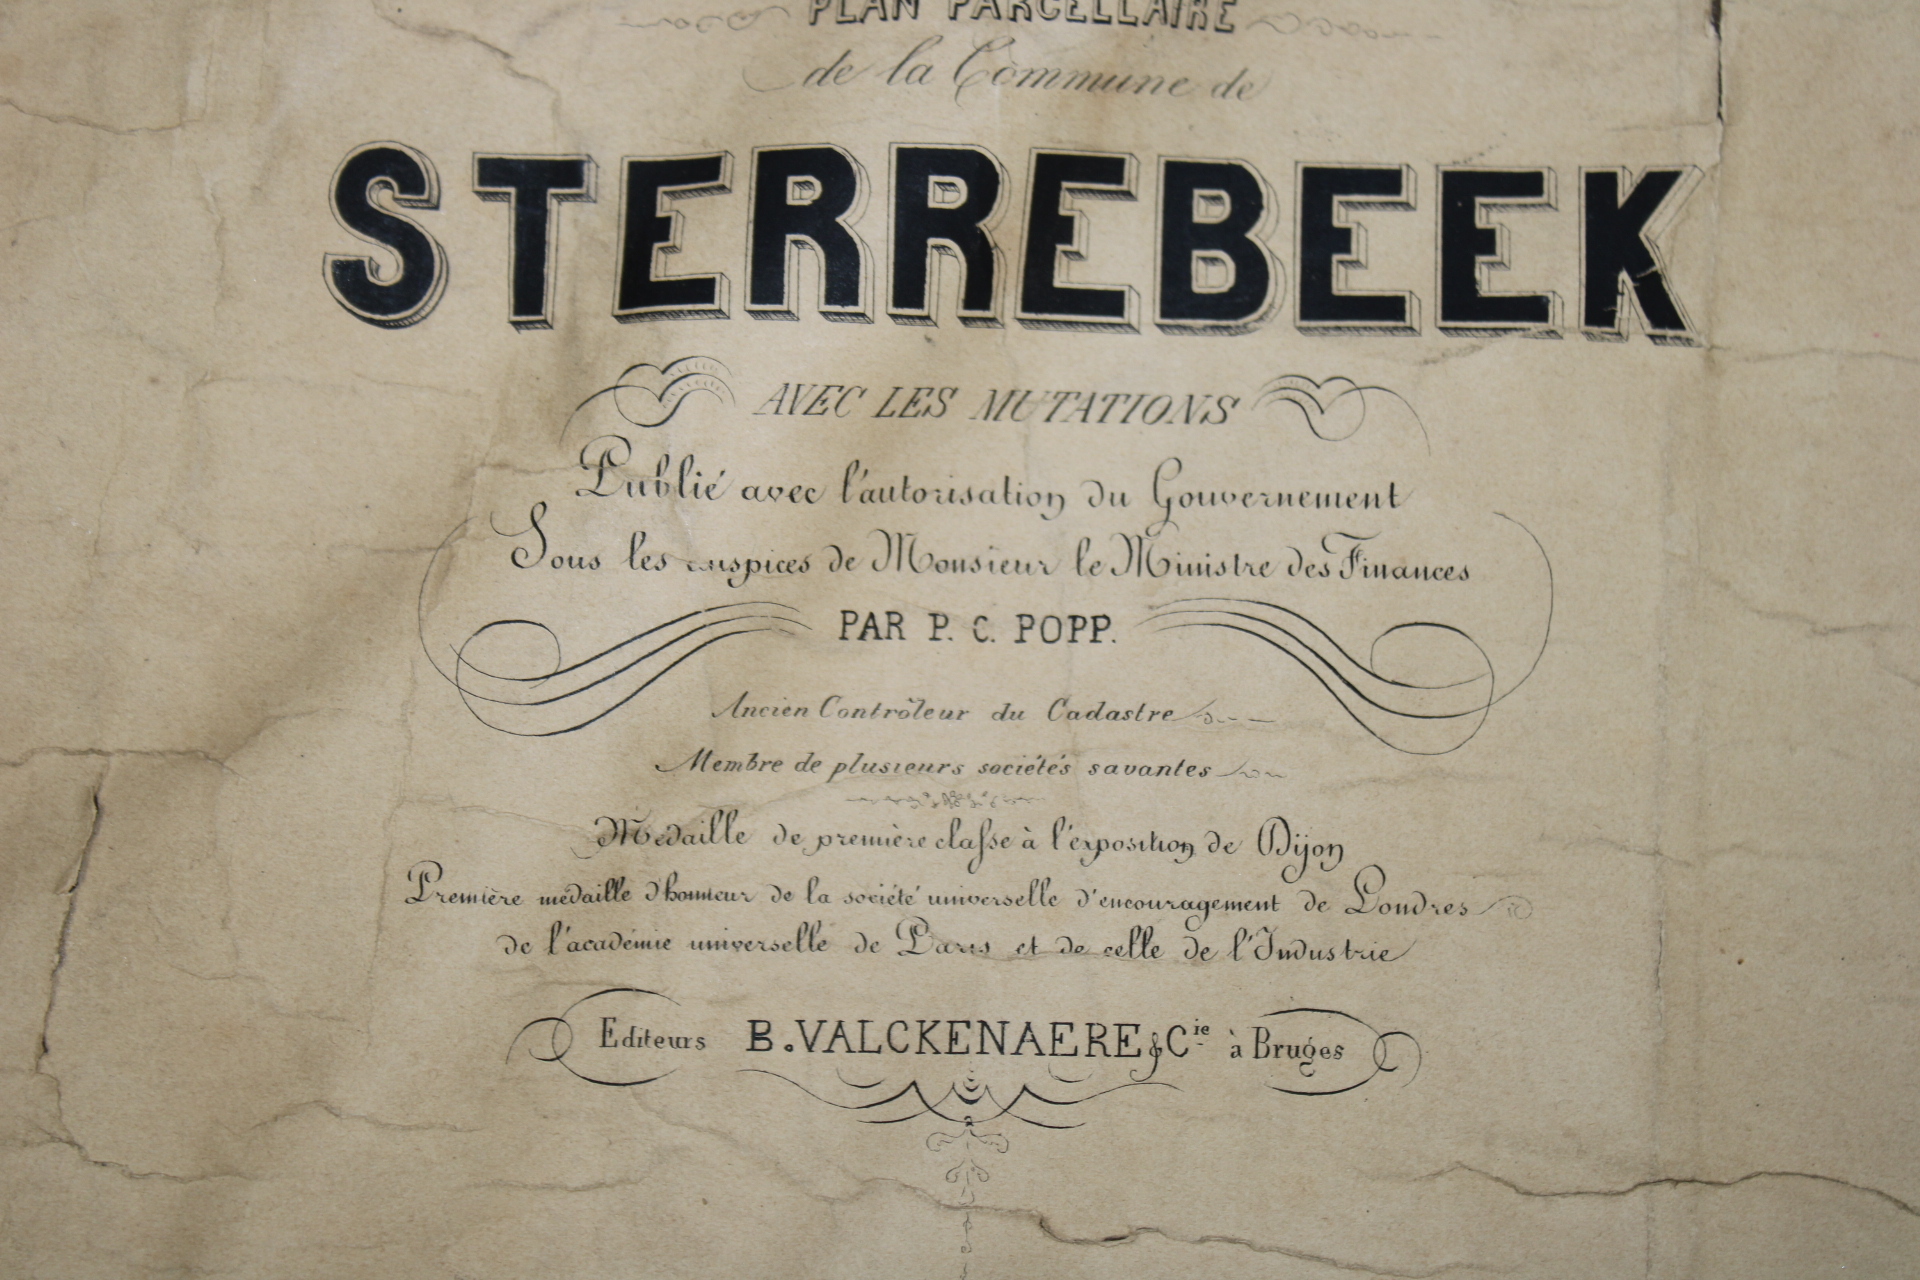 PLAN PARCELLAIRE
de la Commune de
STERREBEEK
AVEC LES MUTATIONS
Publié avec l'autorisation du Gouvernement
Sous les auspices de Monsieur le Ministre des Finances
PAR P. C. POPP.
Ancien Contrôleur du Cadastre
Membre de plusieurs sociétés savantes
Medaille de première classe à l'exposition de Dijon
Première medaille d'honneur de la société universelle d'encouragement de Londres
de l'académie universelle de Paris et de celle de l'Industrie
Editeurs B. VALCKENAERE & Cie à Bruges